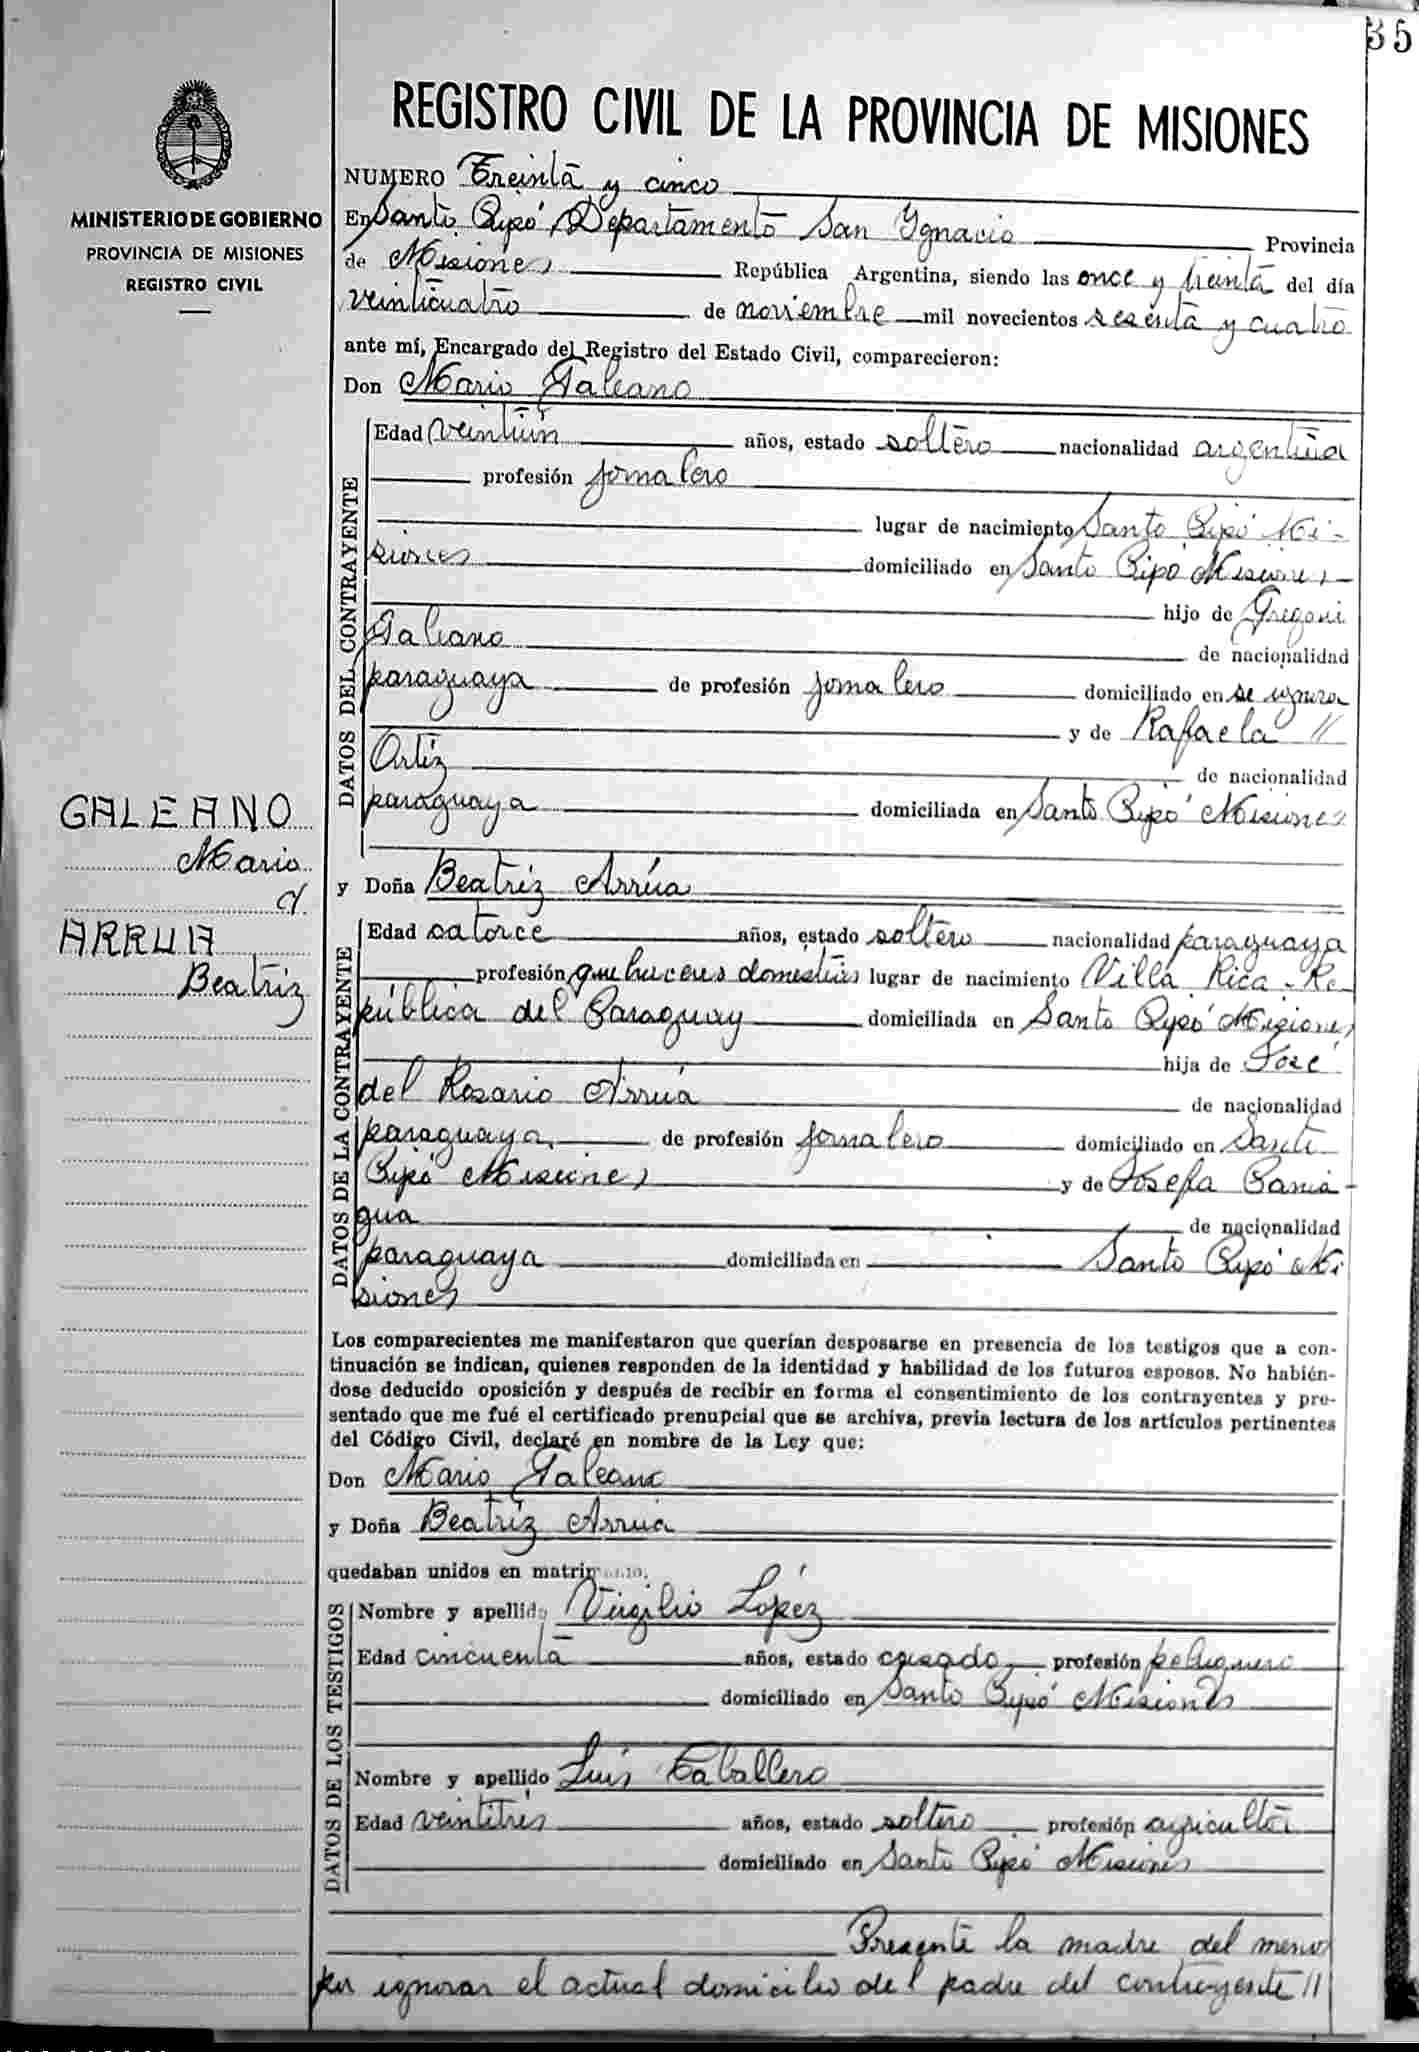 35
REGISTRO CIVIL DE LA PROVINCIA DE MISIONES
MINISTERIO DE GOBIERNO
PROVINCIA DE MISIONES
REGISTRO CIVIL
GALEANO
Mario
c/.
ARRUA
Beatriz
NUMERO Treinta y cinco
En Santo Pipó, Departamento San Ygnacio Provincia
de Misiones República Argentina, siendo las once y treinta del día
veinticuatro de noviembre mil novecientos sesenta y cuatro
ante mí, Encargado del Registro del Estado Civil, comparecieron:
Don Mario Galeano
DATOS DEL CONTRAYENTE
Edad veintiún años, estado soltero nacionalidad argentina
profesión jornalero
lugar de nacimiento Santo Pipó Mi-
siones domiciliado en Santo Pipó Misiones
hijo de Gregori
Galeano de nacionalidad
paraguaya de profesión jornalero domiciliado en se ignora
y de Rafaela //
Ortiz de nacionalidad
paraguaya domiciliada en Santo Pipó Misiones
y Doña Beatriz Arrúa
DATOS DE LA CONTRAYENTE
Edad catorce años, estado soltero nacionalidad paraguaya
profesión quehaceres domésticos lugar de nacimiento Villa Rica - Re-
pública del Paraguay domiciliada en Santo Pipó Misiones
hija de José
del Rosario Arrúa de nacionalidad
paraguaya de profesión jornalero domiciliado en Santo
Pipó Misiones y de Josefa Pania-
gua de nacionalidad
paraguaya domiciliada en Santo Pipó Mi
siones
Los comparecientes me manifestaron que querían desposarse en presencia de los testigos que a con-
tinuación se indican, quienes responden de la identidad y habilidad de los futuros esposos. No habién-
dose deducido oposición y después de recibir en forma el consentimiento de los contrayentes y pre-
sentado que me fué el certificado prenupcial que se archiva, previa lectura de los artículos pertinentes
del Código Civil, declaré en nombre de la Ley que:
Don Mario Galeano
y Doña Beatriz Arrúa
quedaban unidos en matrimonio.
DATOS DE LOS TESTIGOS
Nombre y apellido Virgilio López
Edad cincuenta años, estado casado profesión peluquero
domiciliado en Santo Pipó Misiones
Nombre y apellido Luis Caballero
Edad veintitrés años, estado soltero profesión agricultor
domiciliado en Santo Pipó Misiones
Presente la madre del menor
por ignorar el actual domicilio del padre del contrayente //